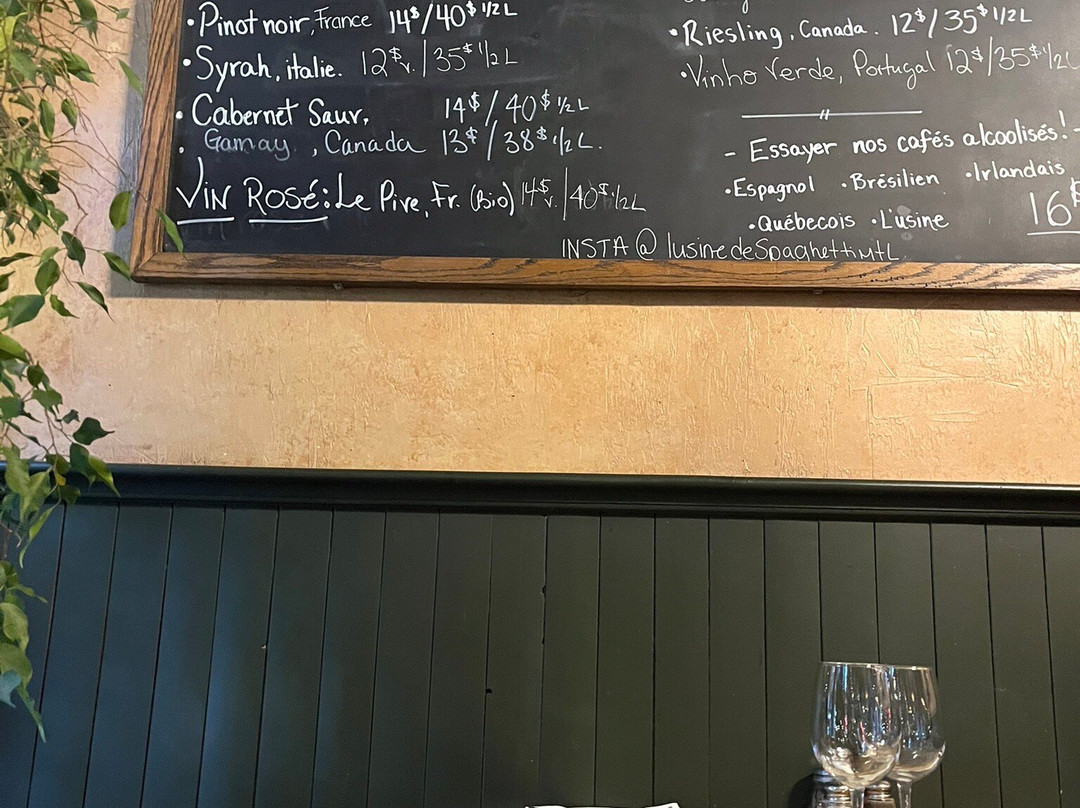 • Pinot noir, France 14$/40$ 1/2 L
• Syrah, italie. 12$v./35$ 1/2 L
• Cabernet Sauv. 14$/40$ 1/2 L
• Gamay, Canada 13$/38$ 1/2 L.
VIN ROSÉ: Le Pive, Fr. (Bio) 14$v./40$ 1/2 L
• Riesling, Canada. 12$/35$ 1/2 L
• Vinho Verde, Portugal 12$/35$ 1/2 L
- Essayer nos cafés alcoolisés! -
• Espagnol • Brésilien • Irlandais
• Québecois • L'usine 16$
INSTA @ lusinedeSpaghettiMtL